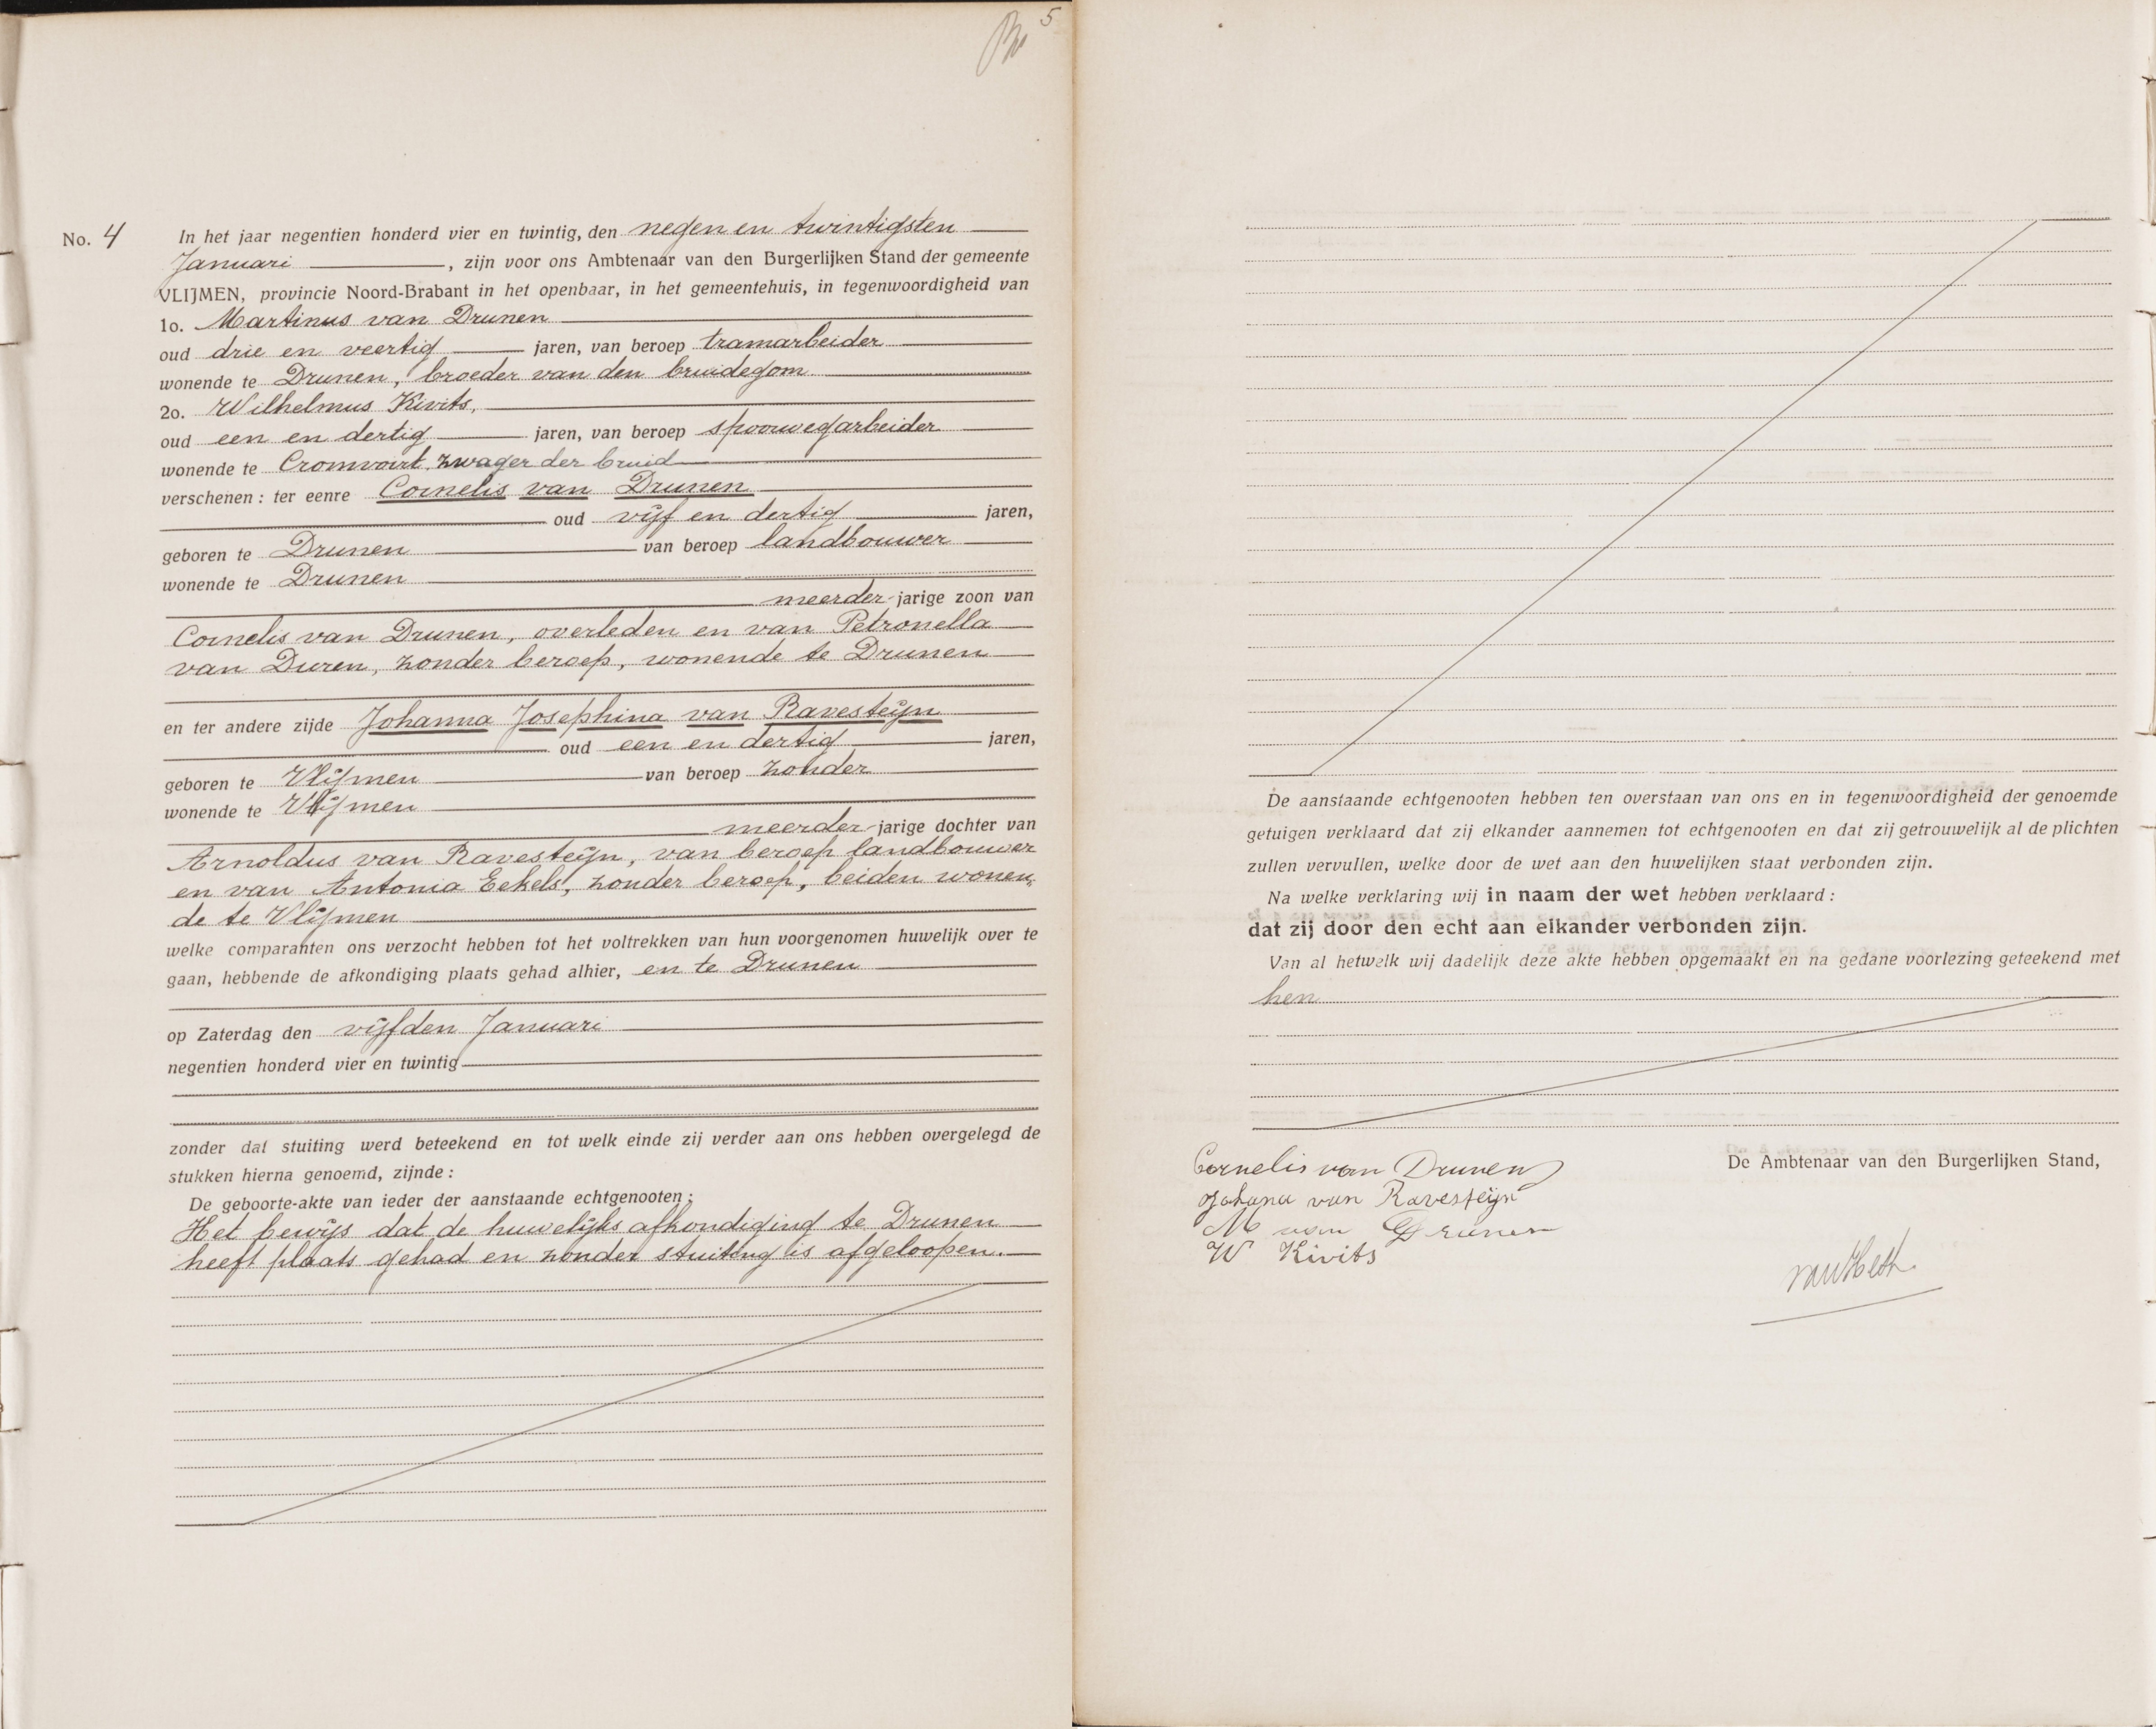 5
No. 4 In het jaar negentien honderd vier en twintig, den negen en twintigsten
Januari, zijn voor ons Ambtenaar van den Burgerlijken Stand der gemeente
VLIJMEN, provincie Noord-Brabant in het openbaar, in het gemeentehuis, in tegenwoordigheid van
1o. Martinus van Drunen
oud drie en veertig jaren, van beroep tramarbeider
wonende te Drunen, broeder van den bruidegom
2o. Wilhelmus Kivits,
oud een en dertig jaren, van beroep spoorwegarbeider
wonende te Cromvoirt, zwager der bruid
verschenen: ter eenre Cornelis van Drunen
oud vijf en dertig jaren,
geboren te Drunen van beroep landbouwer
wonende te Drunen
meerder-jarige zoon van
Cornelis van Drunen, overleden en van Petronella
van Duren, zonder beroep, wonende te Drunen
en ter andere zijde Johanna Josephina van Ravesteijn
oud een en dertig jaren,
geboren te Vlijmen van beroep zonder
wonende te Vlijmen
meerder-jarige dochter van
Arnoldus van Ravesteijn, van beroep landbouwer
en van Antonia Eekels, zonder beroep, beiden wonen-
de te Vlijmen
welke comparanten ons verzocht hebben tot het voltrekken van hun voorgenomen huwelijk over te
gaan, hebbende de afkondiging plaats gehad alhier, en te Drunen
op Zaterdag den vijfden Januari
negentien honderd vier en twintig
zonder dat stuiting werd beteekend en tot welk einde zij verder aan ons hebben overgelegd de
stukken hierna genoemd, zijnde:
De geboorte-akte van ieder der aanstaande echtgenooten;
Het bewijs dat de huwelijks afkondiging te Drunen
heeft plaats gehad en zonder stuiting is afgeloopen.
De aanstaande echtgenooten hebben ten overstaan van ons en in tegenwoordigheid der genoemde
getuigen verklaard dat zij elkander aannemen tot echtgenooten en dat zij getrouwelijk al de plichten
zullen vervullen, welke door de wet aan den huwelijken staat verbonden zijn.
Na welke verklaring wij in naam der wet hebben verklaard:
dat zij door den echt aan elkander verbonden zijn.
Van al hetwelk wij dadelijk deze akte hebben opgemaakt en na gedane voorlezing geteekend met
hen
Cornelis van Drunen
De Ambtenaar van den Burgerlijken Stand,
Johana van Ravesteijn
M van Drunen
W Kivits